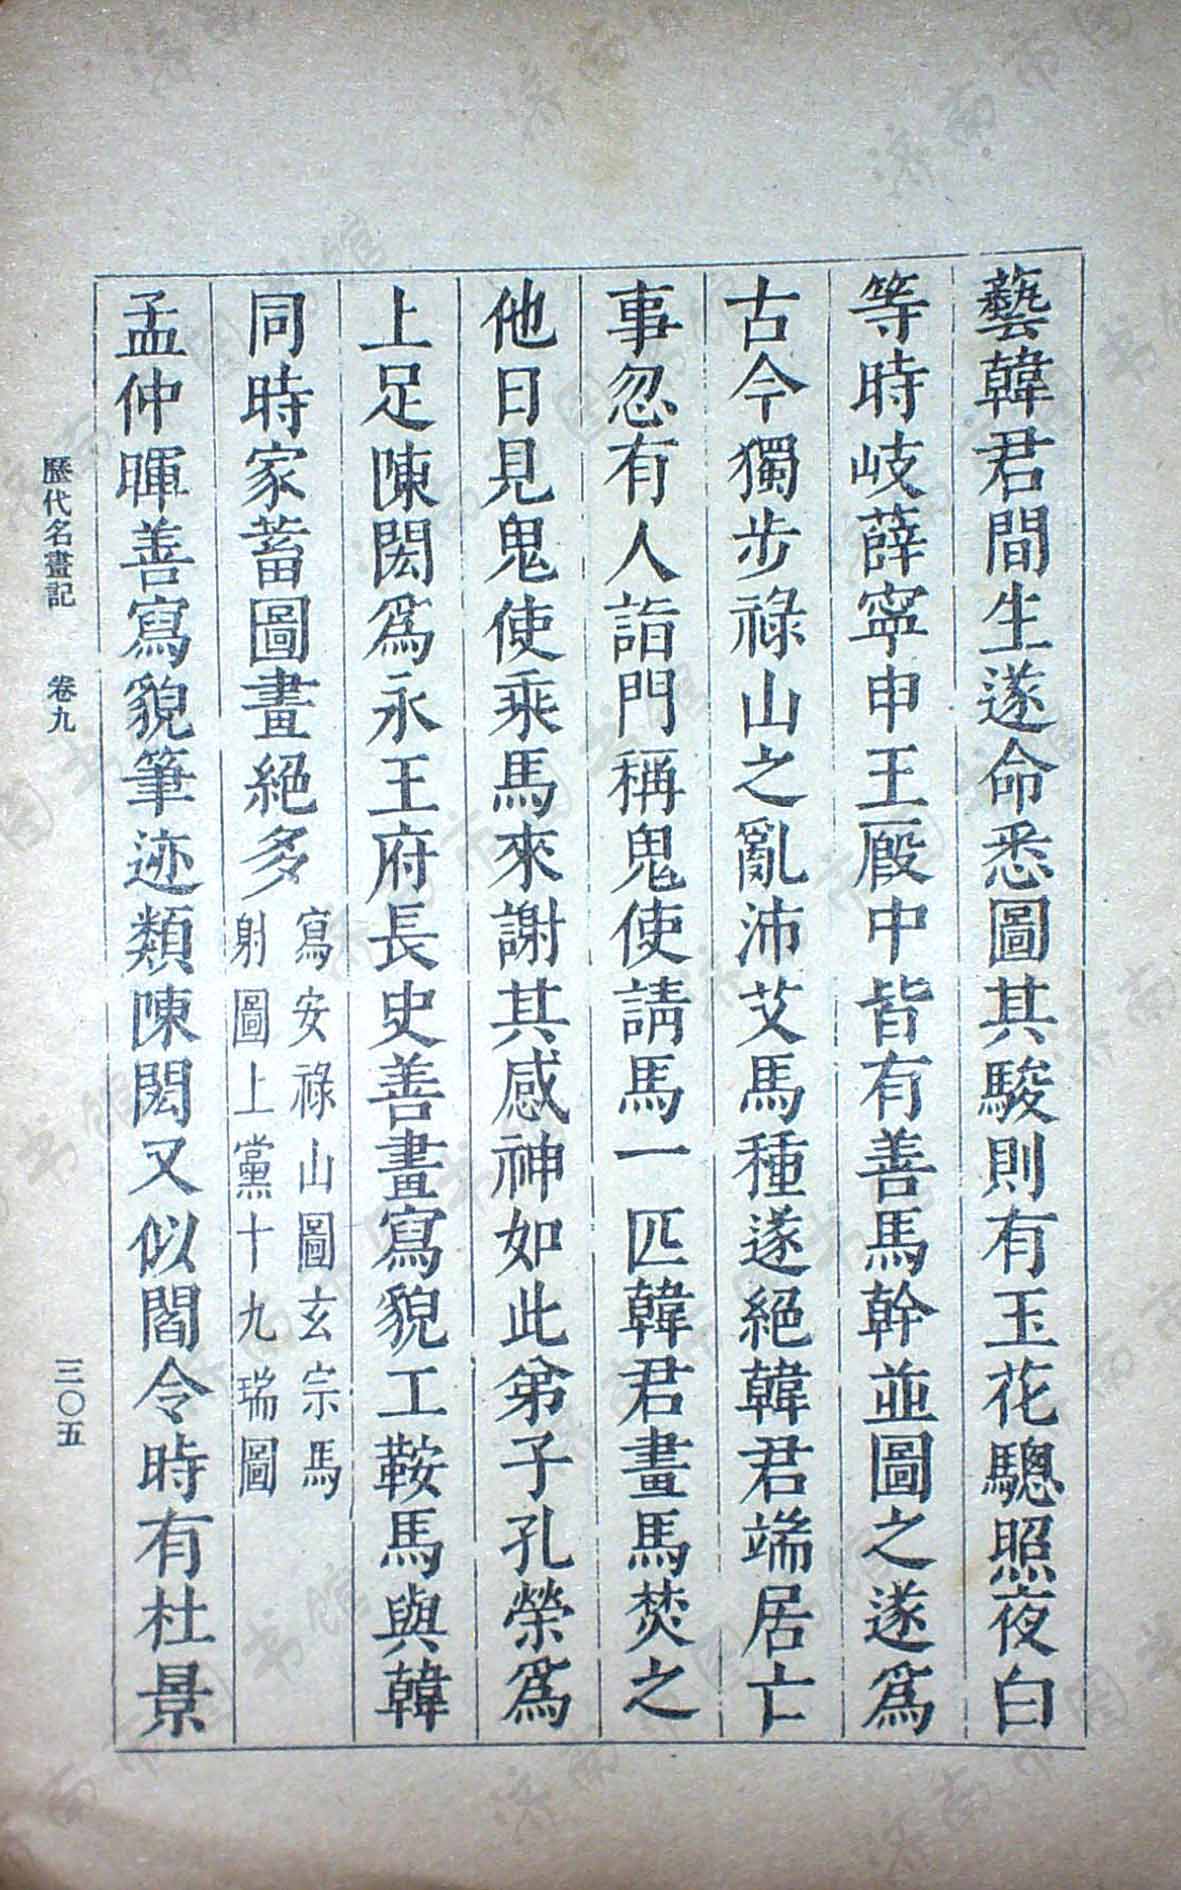 藝韓君間生遂命悉圖其駿則有玉花驄照夜白
等時岐薛寧申王廄中皆有善馬幹並圖之遂爲
古今獨步祿山之亂沛艾馬種遂絕韓君端居亡
事忽有人詣門稱鬼使請馬一匹韓君畫馬焚之
他日見鬼使乘馬來謝其感神如此弟子孔榮爲
上足陳閎爲永王府長史善畫寫貌工鞍馬與韓
同時家蓄圖畫絕多寫安祿山圖玄宗馬射圖上黨十九瑞圖
孟仲暉善寫貌筆迹類陳閎又似閻令時有杜景
歷代名畫記 卷九 三〇五
濟南市图书馆